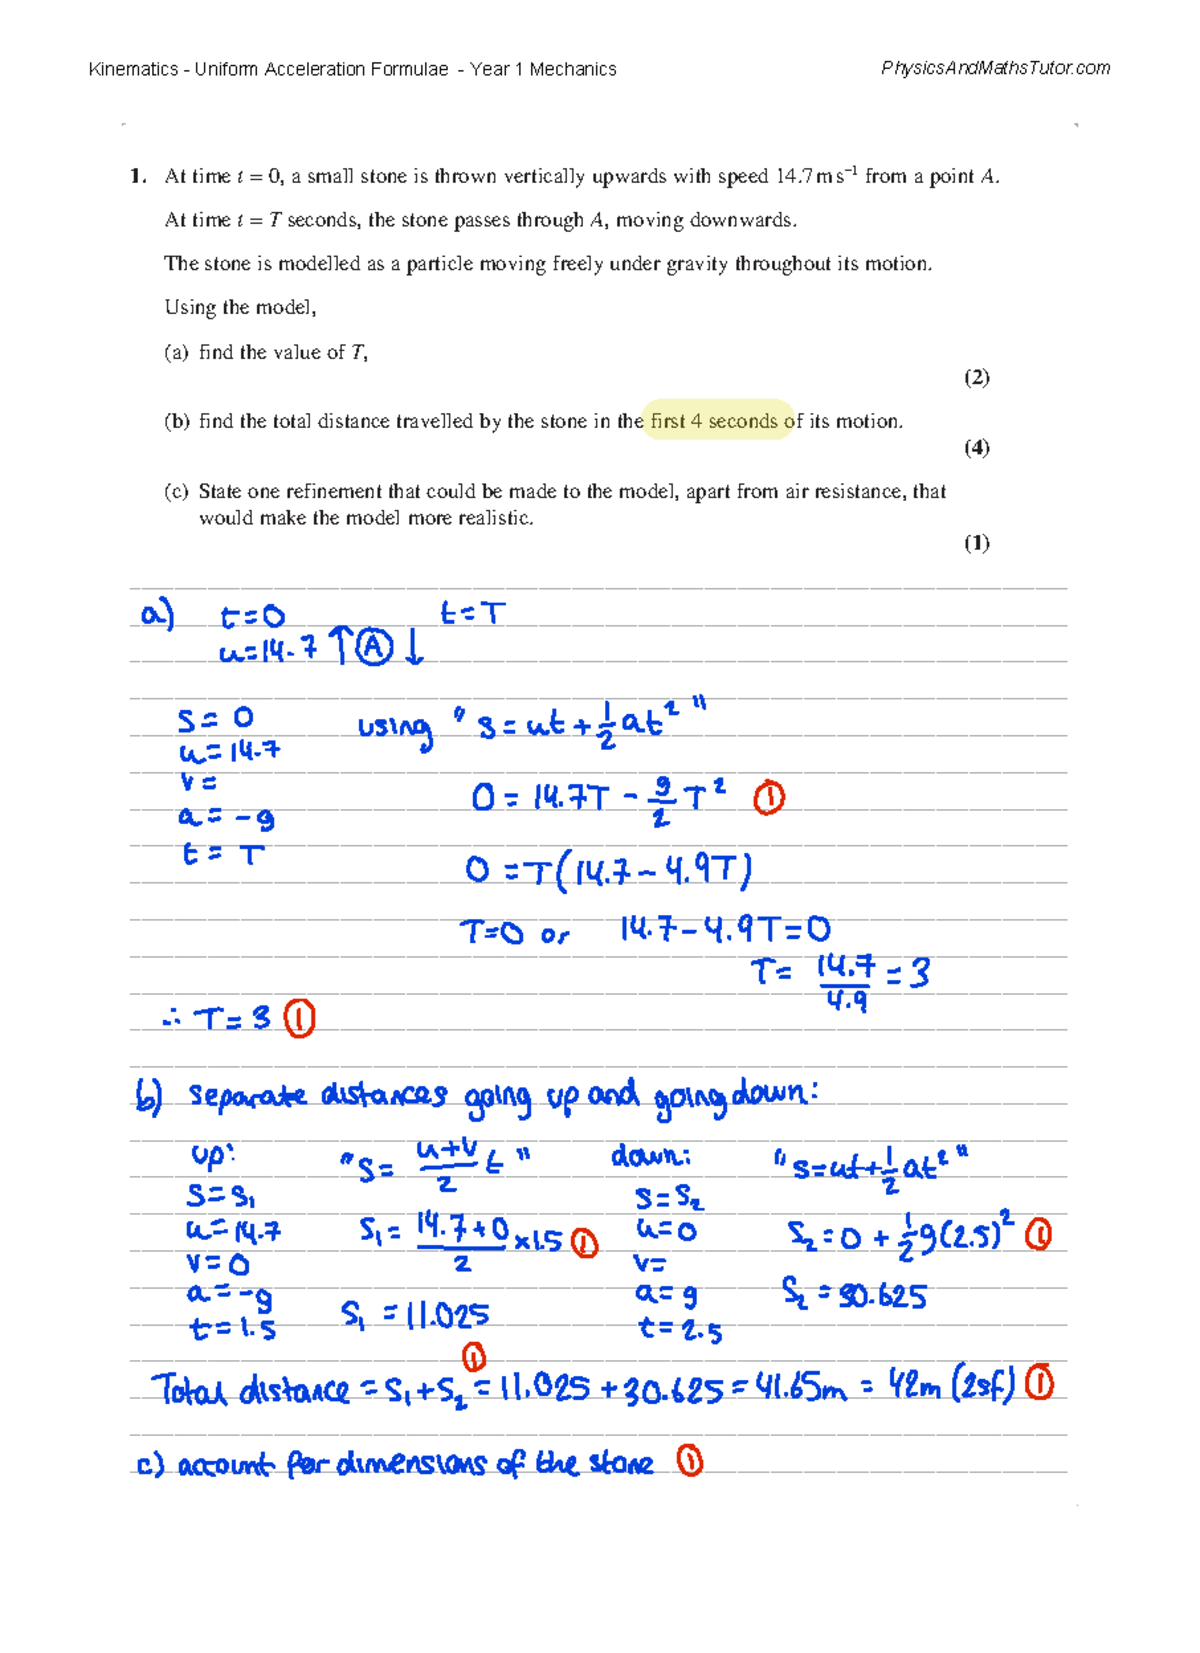 Kinematics - Uniform Acceleration Formulae - Year 1 Mechanics
PhysicsAndMathsTutor.com
1. At time t = 0, a small stone is thrown vertically upwards with speed 14.7 m s⁻¹ from a point A.
At time t = T seconds, the stone passes through A, moving downwards.
The stone is modelled as a particle moving freely under gravity throughout its motion.
Using the model,
(a) find the value of T,
(2)
(b) find the total distance travelled by the stone in the first 4 seconds of its motion.
(4)
(c) State one refinement that could be made to the model, apart from air resistance, that
would make the model more realistic.
(1)
a) t=0 t=T
u=14.7 ↑Ⓐ↓
s= 0 using "s=ut+½at²"
u=14.7
v=
0 = 14.7T - g/2 T² ①
a= -g
t= T
0 =T(14.7-4.9T)
T=0 or 14.7-4.9T=0
T= 14.7/4.9 = 3
∴ T=3 ①
b) separate distances going up and going down:
up: "s= (u+v)/2 t" down: "s=ut+½at²"
s=s₁ s=s₂
u=14.7 s₁= (14.7+0)/2 ×1.5 ① u=0 s₂=0 + ½g(2.5)² ①
v=0 v=
a=-g s₁ =11.025 a=g s₂ =30.625
t=1.5 t=2.5
①
Total distance = s₁+s₂ = 11.025 +30.625 = 41.65m = 42m (2sf) ①
c) account for dimensions of the stone ①